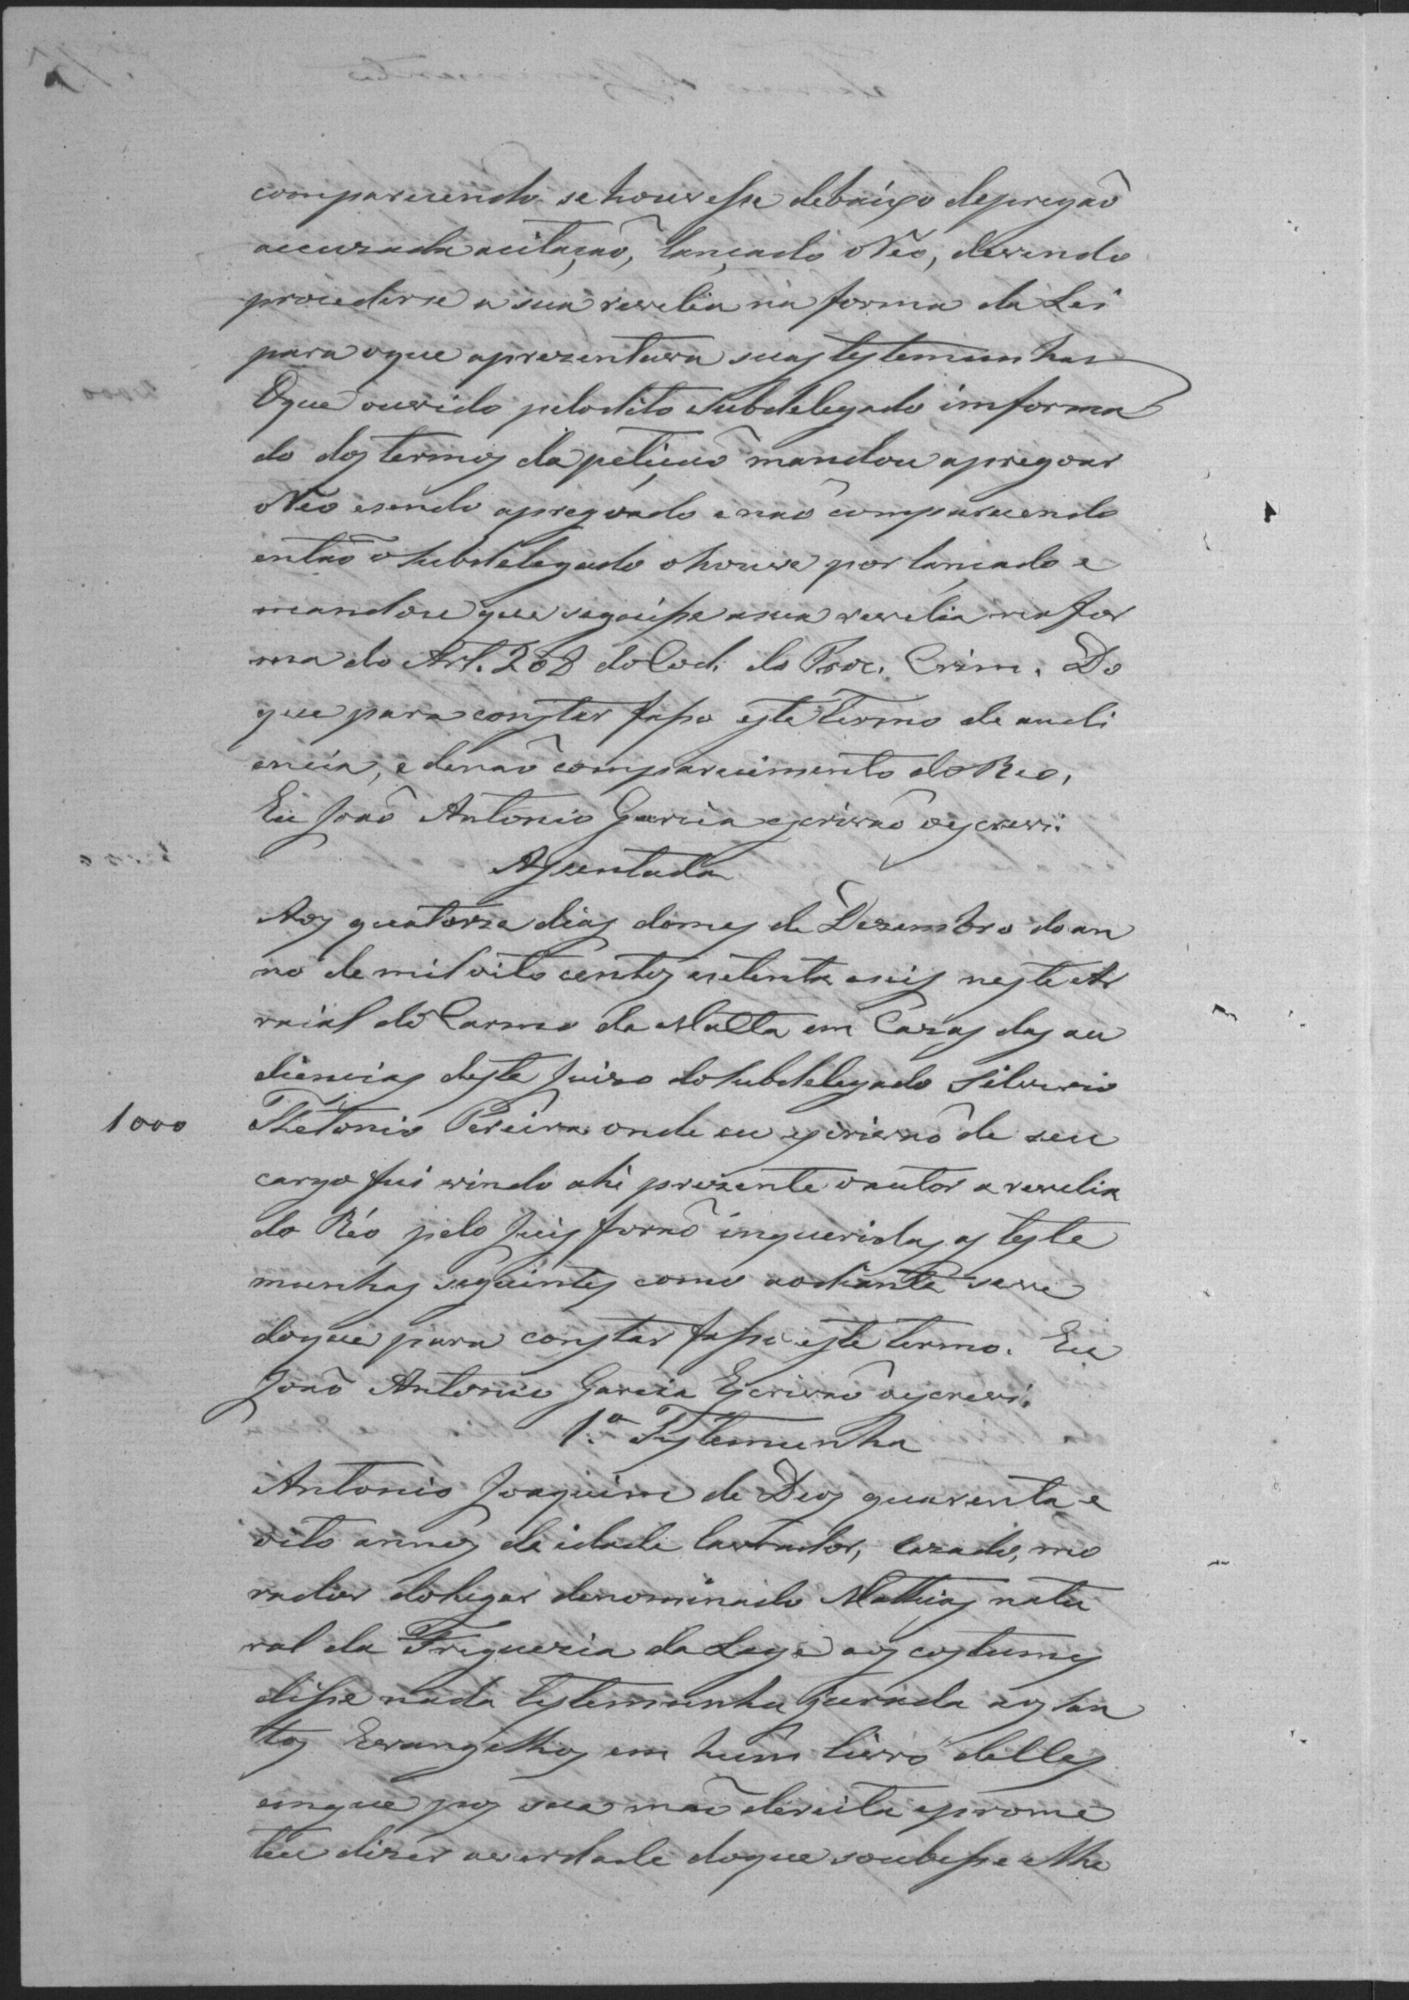 comparecendo se houvesse debaixo depregaõ
accuzada acitaçaõ, lançado oReo, devendo
procederse a sua revelia na forma da Lei
para oque aprezentava suas testemunhas
Oque ouvido pelodito Subdelegado imforma
do dos termos da petiçaõ mandou apregoar
oReo esendo apregoado e naõ comparecendo
entaõ o Subdelegado ohouve por lançado e
mandou que seguisse asua revelia na for
ma do Art. 208 do Cod. do Proc. Crim. Do
que para constar fasso este Termo de audi
encia, e denaõ comparecimento do Reo,
Eu Joaõ Antonio Garcia escrivaõ oescrevi.
Assentada
Aos quatorze dias domes de Dezembro do an
no de mil oito centos esetenta eseis neste Ar
raial do Carmo da Matta em Cazas das au
diencias deste Juizo do Subdelegado Silverio
1000
Thetonio Pereira onde eu escrivaõ de seu
cargo fui vindo ahi prezente oautor a revelia
do Réo pelo Juis foraõ inqueridas as teste
munhas seguintes como aodiante sevê
doque para constar fasso este termo. Eu
Joaõ Antonio Garcia Escrivaõ oescrevi.
1.ª Testemunha
Antonio Joaquim de Deos quarenta e
oito annos de idade lavrador, cazado, mo
rador dolugar denominado Mattias natu
ral da Freguezia da Lage aos costumes
disse nada testemunha jurada aos San
tos Evangelhos em hum livro delles
emque pos sua maõ direita eprome
teu dizer averdade doque soubesse elhe